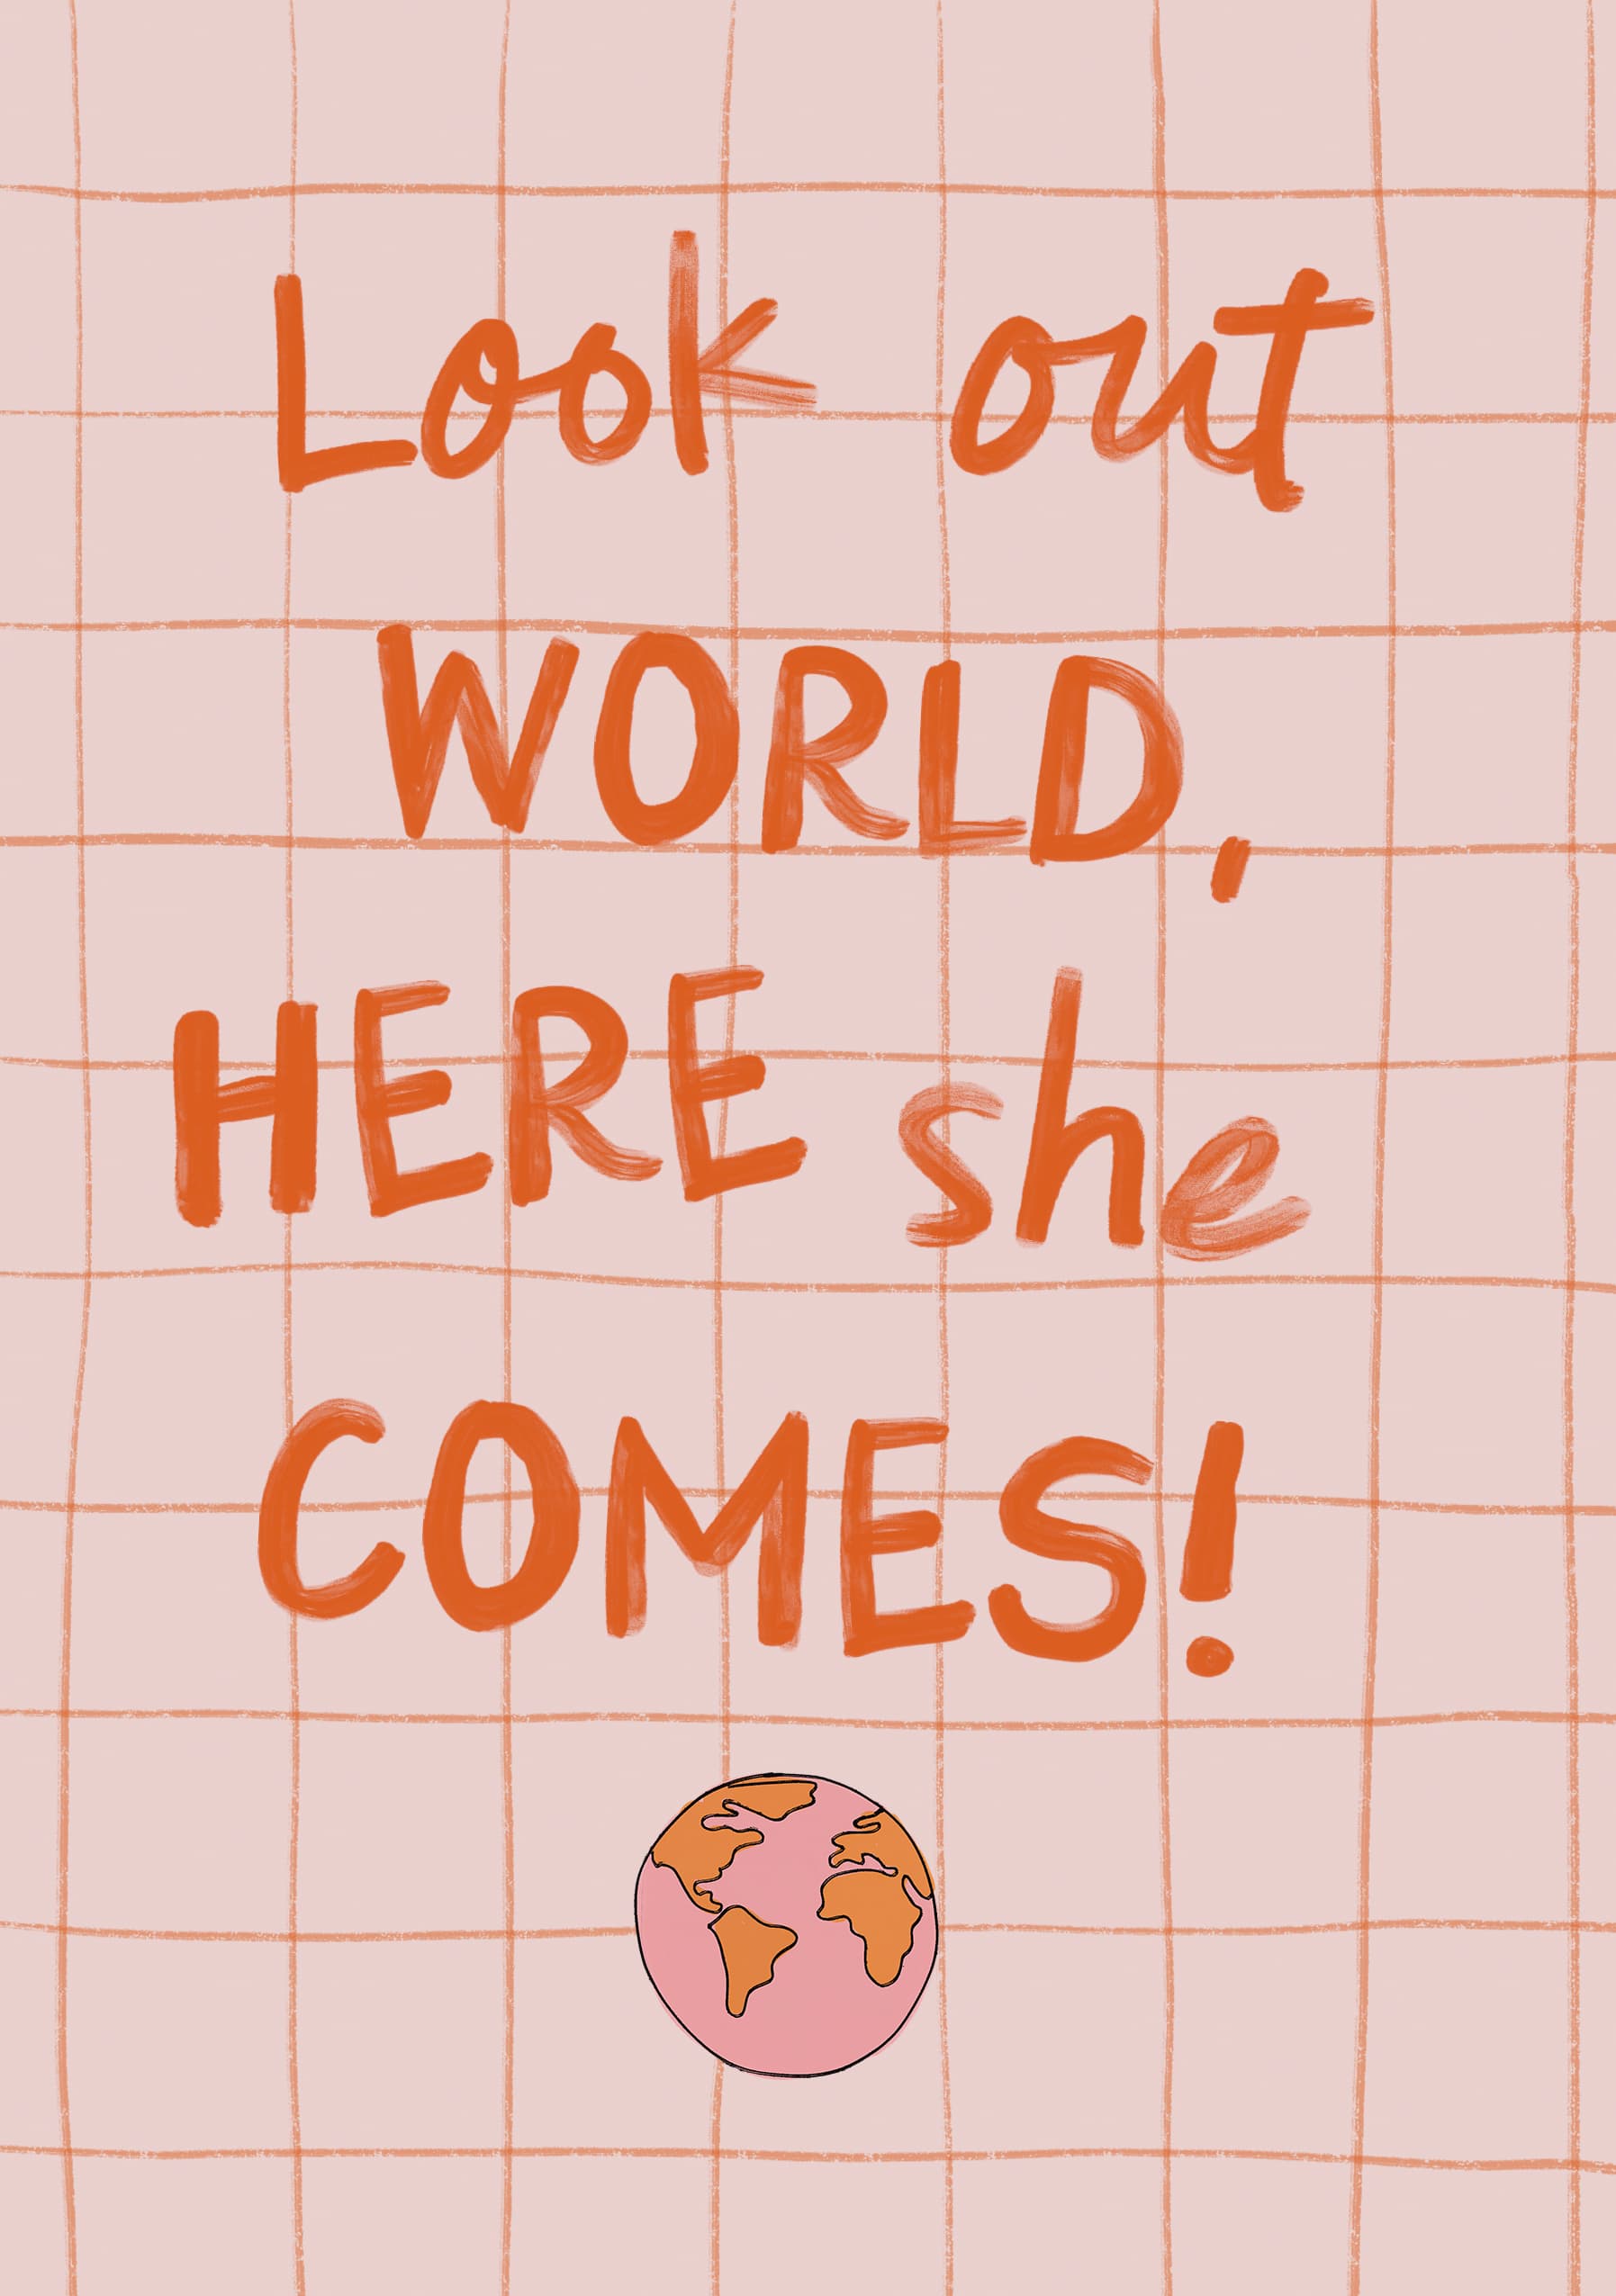 Look out
WORLD,
HERE she
COMES!